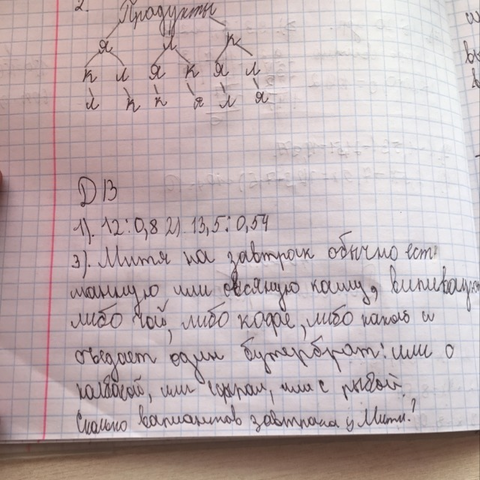 2. Продукты
я л к
к л я к я л
л к к я л я
ДЗ
1). 12:0,8 2). 13,5:0,54
3). Митя на завтрак обычно ест
манную или овсяную кашу, выпивает
либо чай, либо кофе, либо какао и
съедает один бутерброт: или с
колбасой, или сыром, или с рыбой.
Сколько вариантов завтрака у Мити?